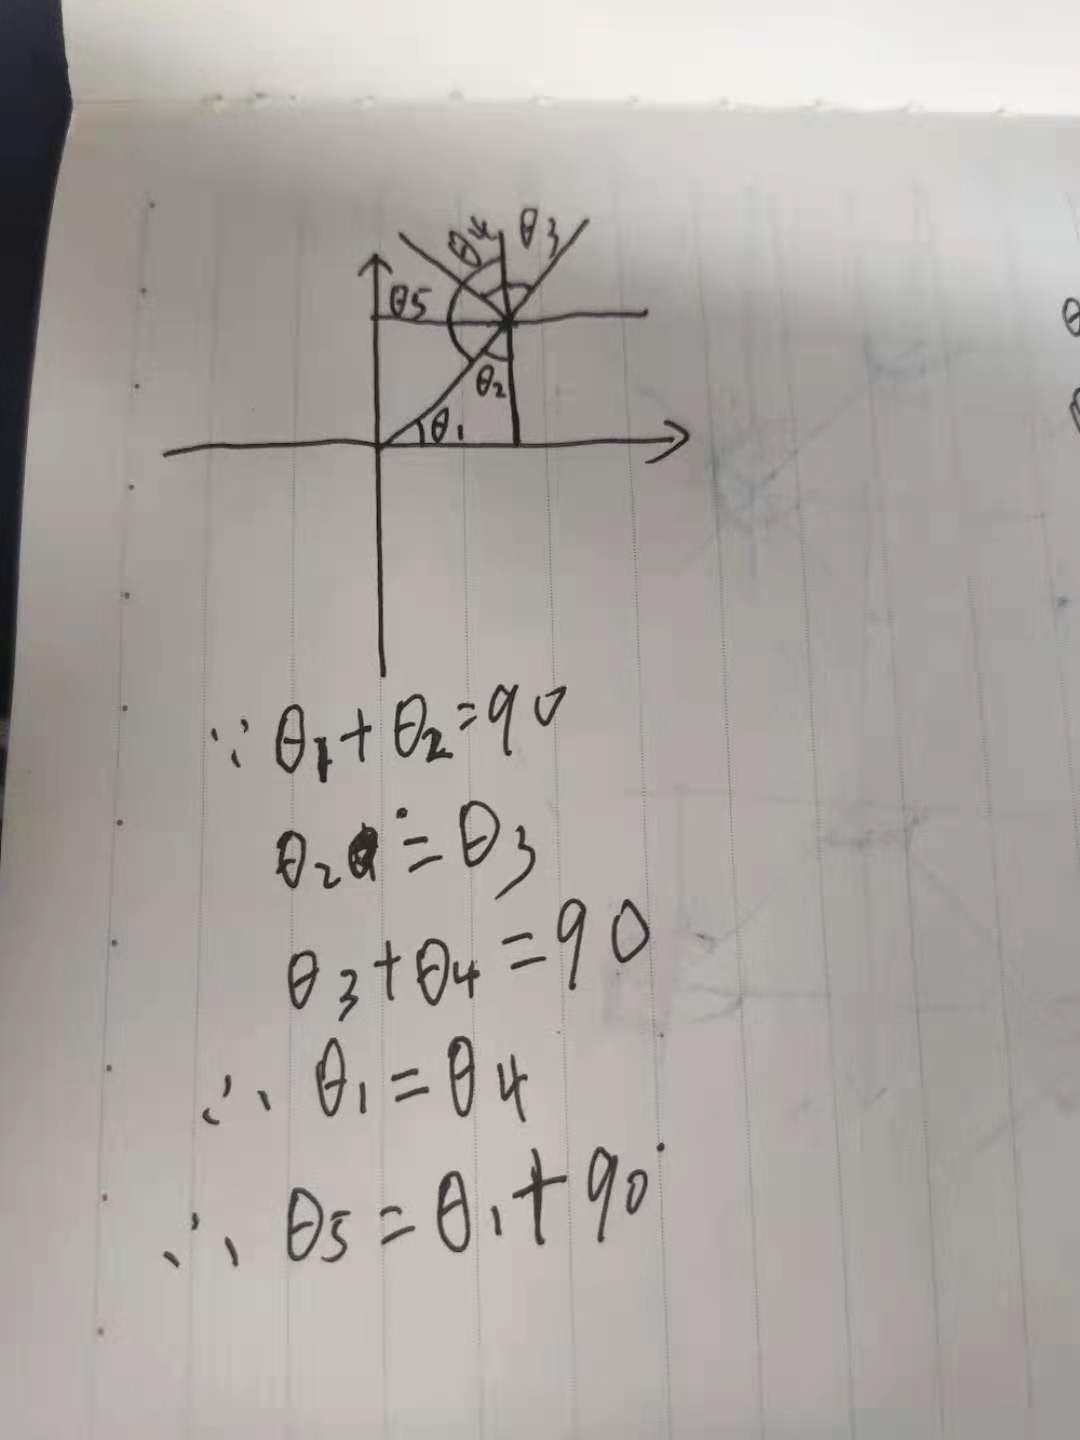 θ4 θ3
θ5
θ2
θ1
∵ θ1 + θ2 = 90
θ2 = θ3
θ3 + θ4 = 90
∴ θ1 = θ4
∴ θ5 = θ1 + 90°